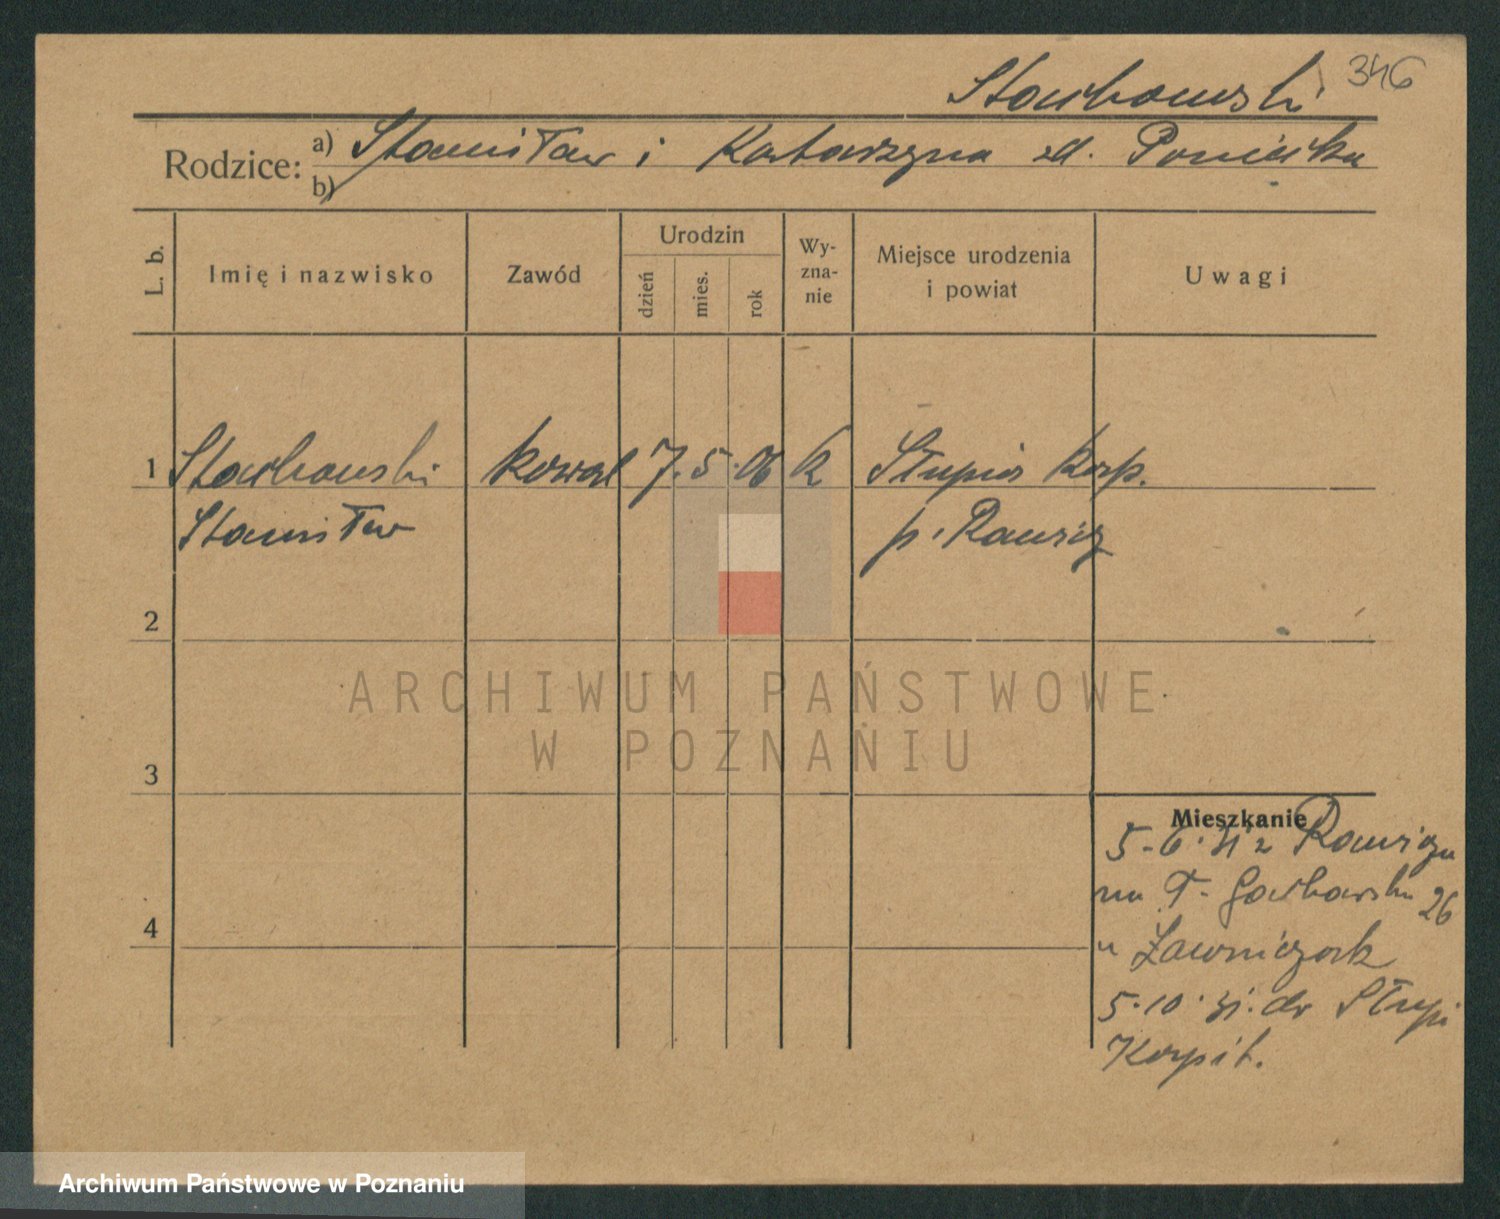 Stachowski 346
Rodzice: a) Stanisław i Katarzyna zd. Ponicka
b)
L. b. Imię i nazwisko Zawód Urodzin dzień mies. rok Wyznanie Miejsce urodzenia i powiat Uwagi
1 Stachowski kowal 7. 5. 06 k Słupia Korp.
Stanisław p. Rawicz
2
ARCHIWUM PAŃSTWOWE
W POZNANIU
3
Mieszkanie
5.6.31 z Rawicza
na T. 26
u Ławniczak
5.10.31. do Słupi
Kapit.
4
Archiwum Państwowe w Poznaniu